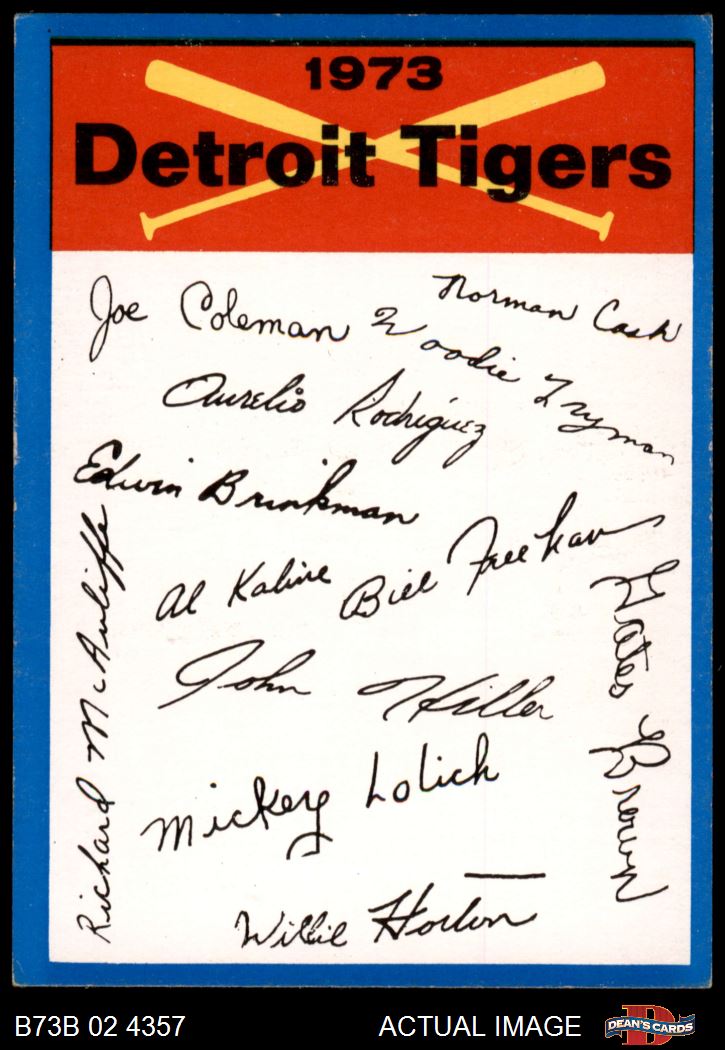 1973
Detroit Tigers
Norman Cash
Joe Coleman
Woodie Fryman
Aurelio Rodriguez
Edwin Brinkman
Al Kaline
Bill Freehan
Richard McAuliffe
Gates Brown
John Hiller
Mickey Lolich
Willie Horton
B73B 02 4357
ACTUAL IMAGE
D
DEAN'S CARDS